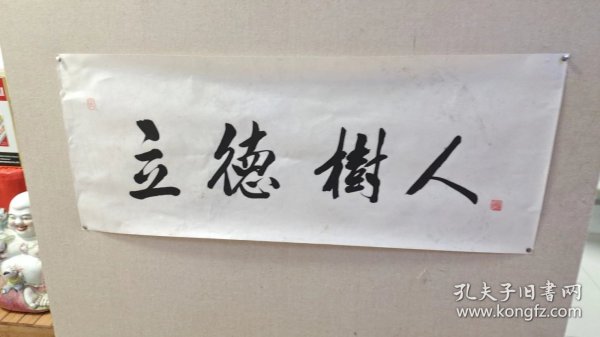 立德樹人
孔夫子旧書网
www.kongfz.com